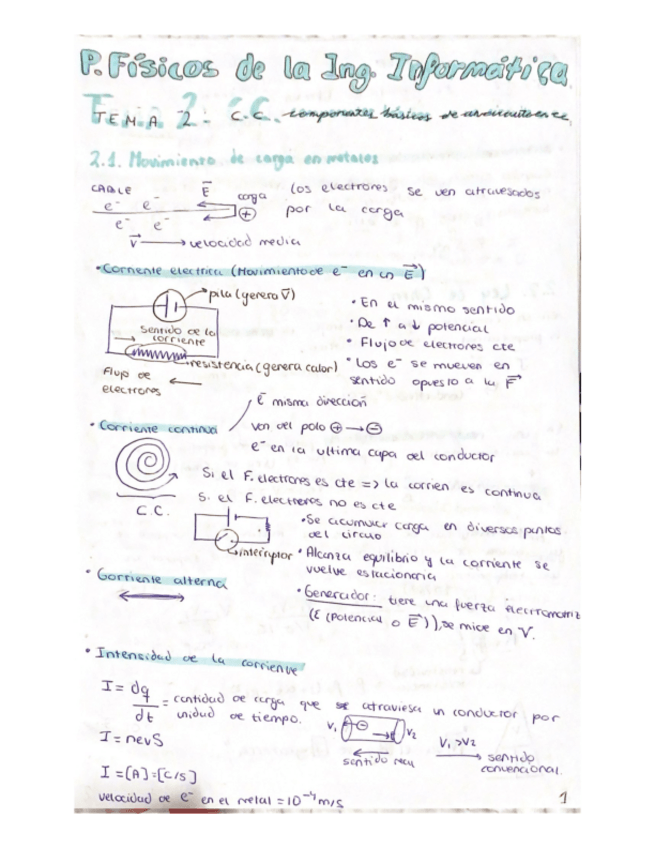 P. Físicos de la Ing. Informática
TEMA 2: C.C. componentes básicos de un circuito en cc.
2.1. Movimiento de carga en metales
CABLE
E carga
e⁻ e⁻
⊕
e⁻ e⁻
v → velocidad media
los electrones se ven atravesados
por la carga
• Corriente electrica (Movimiento de e⁻ en un E)
pila (genera V)
Sentido de la
corriente
resistencia (genera calor)
Flujo de
electrones
• En el mismo sentido
• De ↑ a ↓ potencial
• Flujo de electrones cte
• Los e⁻ se mueven en
sentido opuesto a la F
• Corriente continua
E misma dirección
Van del polo ⊕ → ⊖
e⁻ en la ultima capa del conductor
Si el F. electrones es cte => la corrien es continua
Si el F. electrones no es cte
C.C.
interruptor
• Se acumular carga en diversos puntos
del circuito
• Alcanza equilibrio y la corriente se
vuelve estacionaria
• Corriente alterna
• Generador: tiene una fuerza electromotriz
(E (Potencial o E)), se mide en V.
• Intensidad de la corriente
I = dq/dt = cantidad de carga que se atraviesa un conductor por
unidad de tiempo.
I = nevS
V₁ ⊖ V₂
sentido real
V₁ > V₂
sentido
convencional.
I = [A] = [C/S]
velocidad de e⁻ en el metal = 10⁻⁴ m/s
1